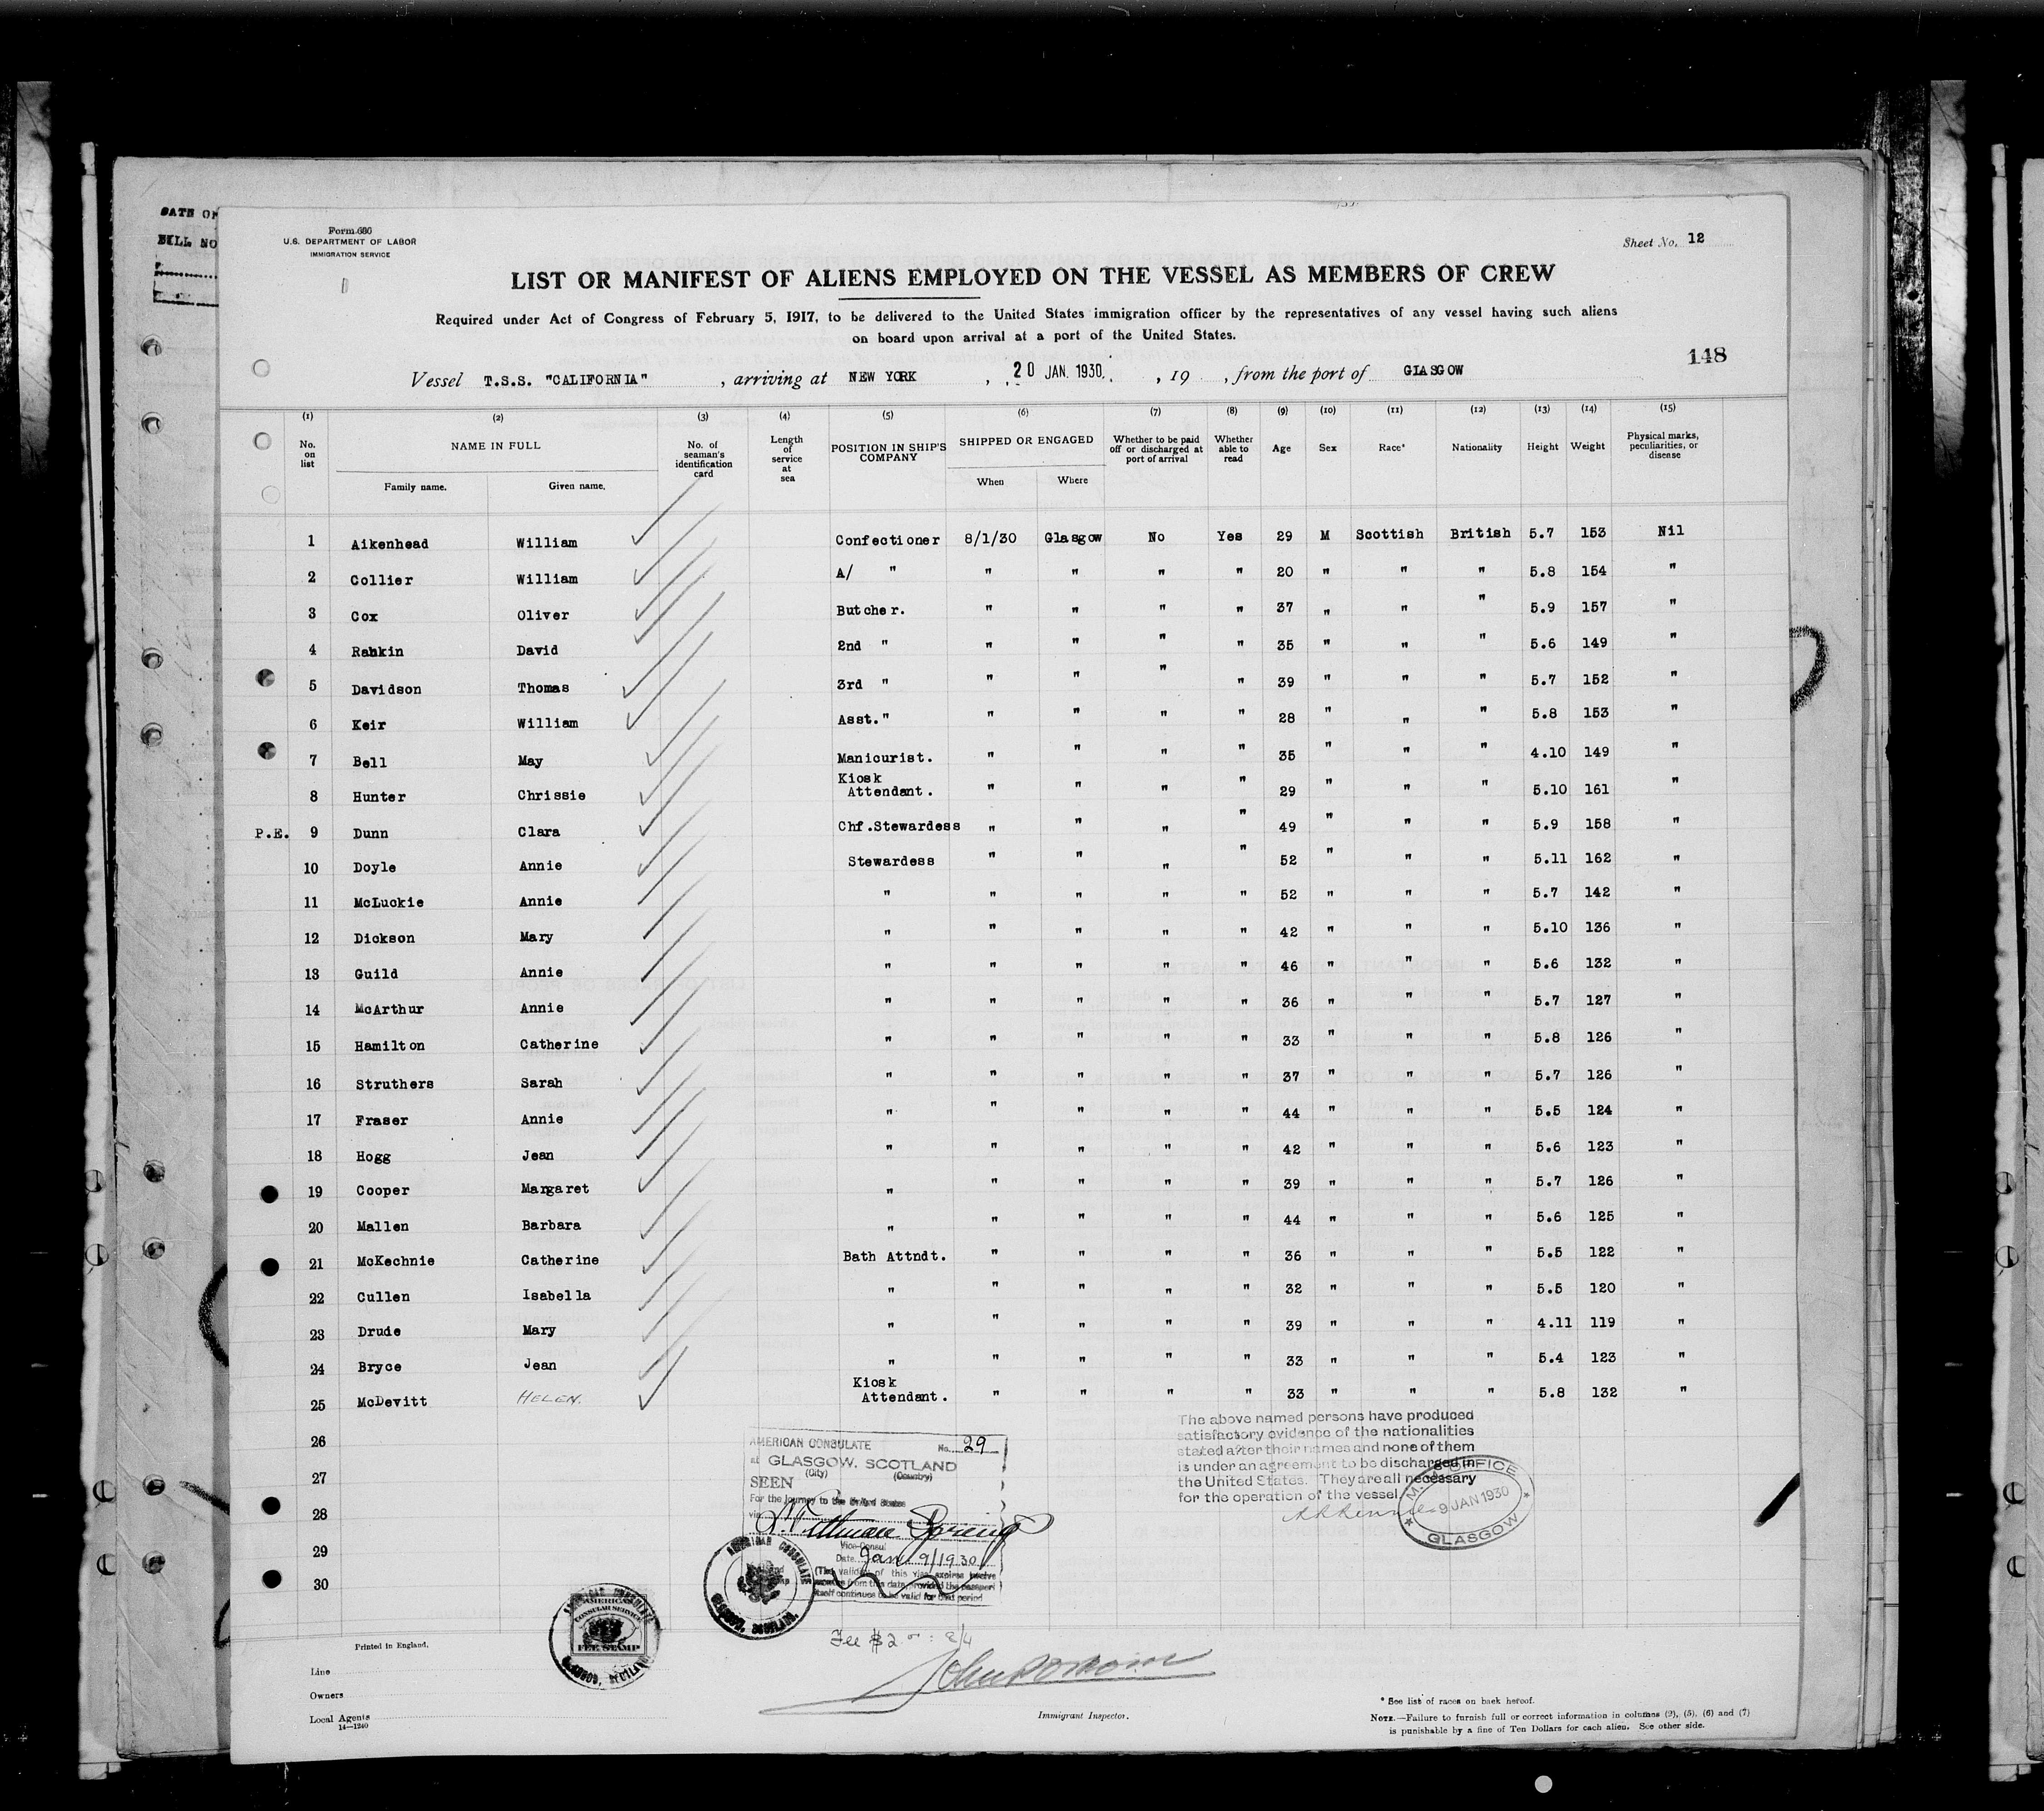 DATE OF
BILL NO
Form 680
U.S. DEPARTMENT OF LABOR
IMMIGRATION SERVICE
Sheet No. 12
LIST OR MANIFEST OF ALIENS EMPLOYED ON THE VESSEL AS MEMBERS OF CREW
Required under Act of Congress of February 5, 1917, to be delivered to the United States immigration officer by the representatives of any vessel having such aliens
on board upon arrival at a port of the United States.
148
Vessel T.S.S. "CALIFORNIA" , arriving at NEW YORK , 20 JAN. 1930. , 19 , from the port of GLASGOW
(1) (2) (3) (4) (5) (6) (7) (8) (9) (10) (11) (12) (13) (14) (15)
No. on list NAME IN FULL Family name. Given name. No. of seaman's identification card Length of service at sea POSITION IN SHIP'S COMPANY SHIPPED OR ENGAGED When Where Whether to be paid off or discharged at port of arrival Whether able to read Age Sex Race* Nationality Height Weight Physical marks, peculiarities, or disease
1 Aikenhead William Confectioner 8/1/30 Glasgow No Yes 29 M Scottish British 5.7 153 Nil
2 Collier William A/ " " " " " 20 " " " 5.8 154 "
3 Cox Oliver Butcher. " " " " 37 " " " 5.9 157 "
4 Rankin David 2nd " " " " " 35 " " " 5.6 149 "
5 Davidson Thomas 3rd " " " " " 39 " " " 5.7 152 "
6 Keir William Asst." " " " " 28 " " " 5.8 153 "
7 Bell May Manicurist. " " " " 35 " " " 4.10 149 "
8 Hunter Chrissie Kiosk Attendant. " " " " 29 " " " 5.10 161 "
P.E. 9 Dunn Clara Chf.Stewardess " " " " 49 " " " 5.9 158 "
10 Doyle Annie Stewardess " " " " 52 " " " 5.11 162 "
11 McLuckie Annie " " " " " 52 " " " 5.7 142 "
12 Dickson Mary " " " " " 42 " " " 5.10 136 "
13 Guild Annie " " " " " 46 " " " 5.6 132 "
14 McArthur Annie " " " " " 36 " " " 5.7 127 "
15 Hamilton Catherine " " " " " 33 " " " 5.8 126 "
16 Struthers Sarah " " " " " 37 " " " 5.7 126 "
17 Fraser Annie " " " " " 44 " " " 5.5 124 "
18 Hogg Jean " " " " " 42 " " " 5.6 123 "
19 Cooper Margaret " " " " " 39 " " " 5.7 126 "
20 Mallen Barbara " " " " " 44 " " " 5.6 125 "
21 McKechnie Catherine Bath Attndt. " " " " 36 " " " 5.5 122 "
22 Cullen Isabella " " " " " 32 " " " 5.5 120 "
23 Drude Mary " " " " " 39 " " " 4.11 119 "
24 Bryce Jean " " " " " 33 " " " 5.4 123 "
25 McDevitt HELEN. Kiosk Attendant. " " " " 33 " " " 5.8 132 "
26
27
28
29
30
The above named persons have produced
satisfactory evidence of the nationalities
stated after their names and none of them
is under an agreement to be discharged in
the United States. They are all necessary
for the operation of the vessel
OFFICE
9 JAN 1930
GLASGOW
AMERICAN CONSULATE No. 29
at GLASGOW, SCOTLAND
(City) (Country)
SEEN
For the journey to the United States
via
Vice-Consul
Date Jan. 9/1930
(The validity of this visa expires twelve
months from this date, provided the passport
itself continues to be valid for that period
AMERICAN CONSULATE
GLASGOW, SCOTLAND.
AMERICAN CONSULATE
AMERICAN
CONSULAR SERVICE
FEE STAMP
GLASGOW, SCOTLAND
Fee $2
Printed in England.
Line
Owners
Local Agents
14—1240
Immigrant Inspector.
* See list of races on back hereof.
NOTE.—Failure to furnish full or correct information in columns (2), (5), (6) and (7)
is punishable by a fine of Ten Dollars for each alien. See other side.